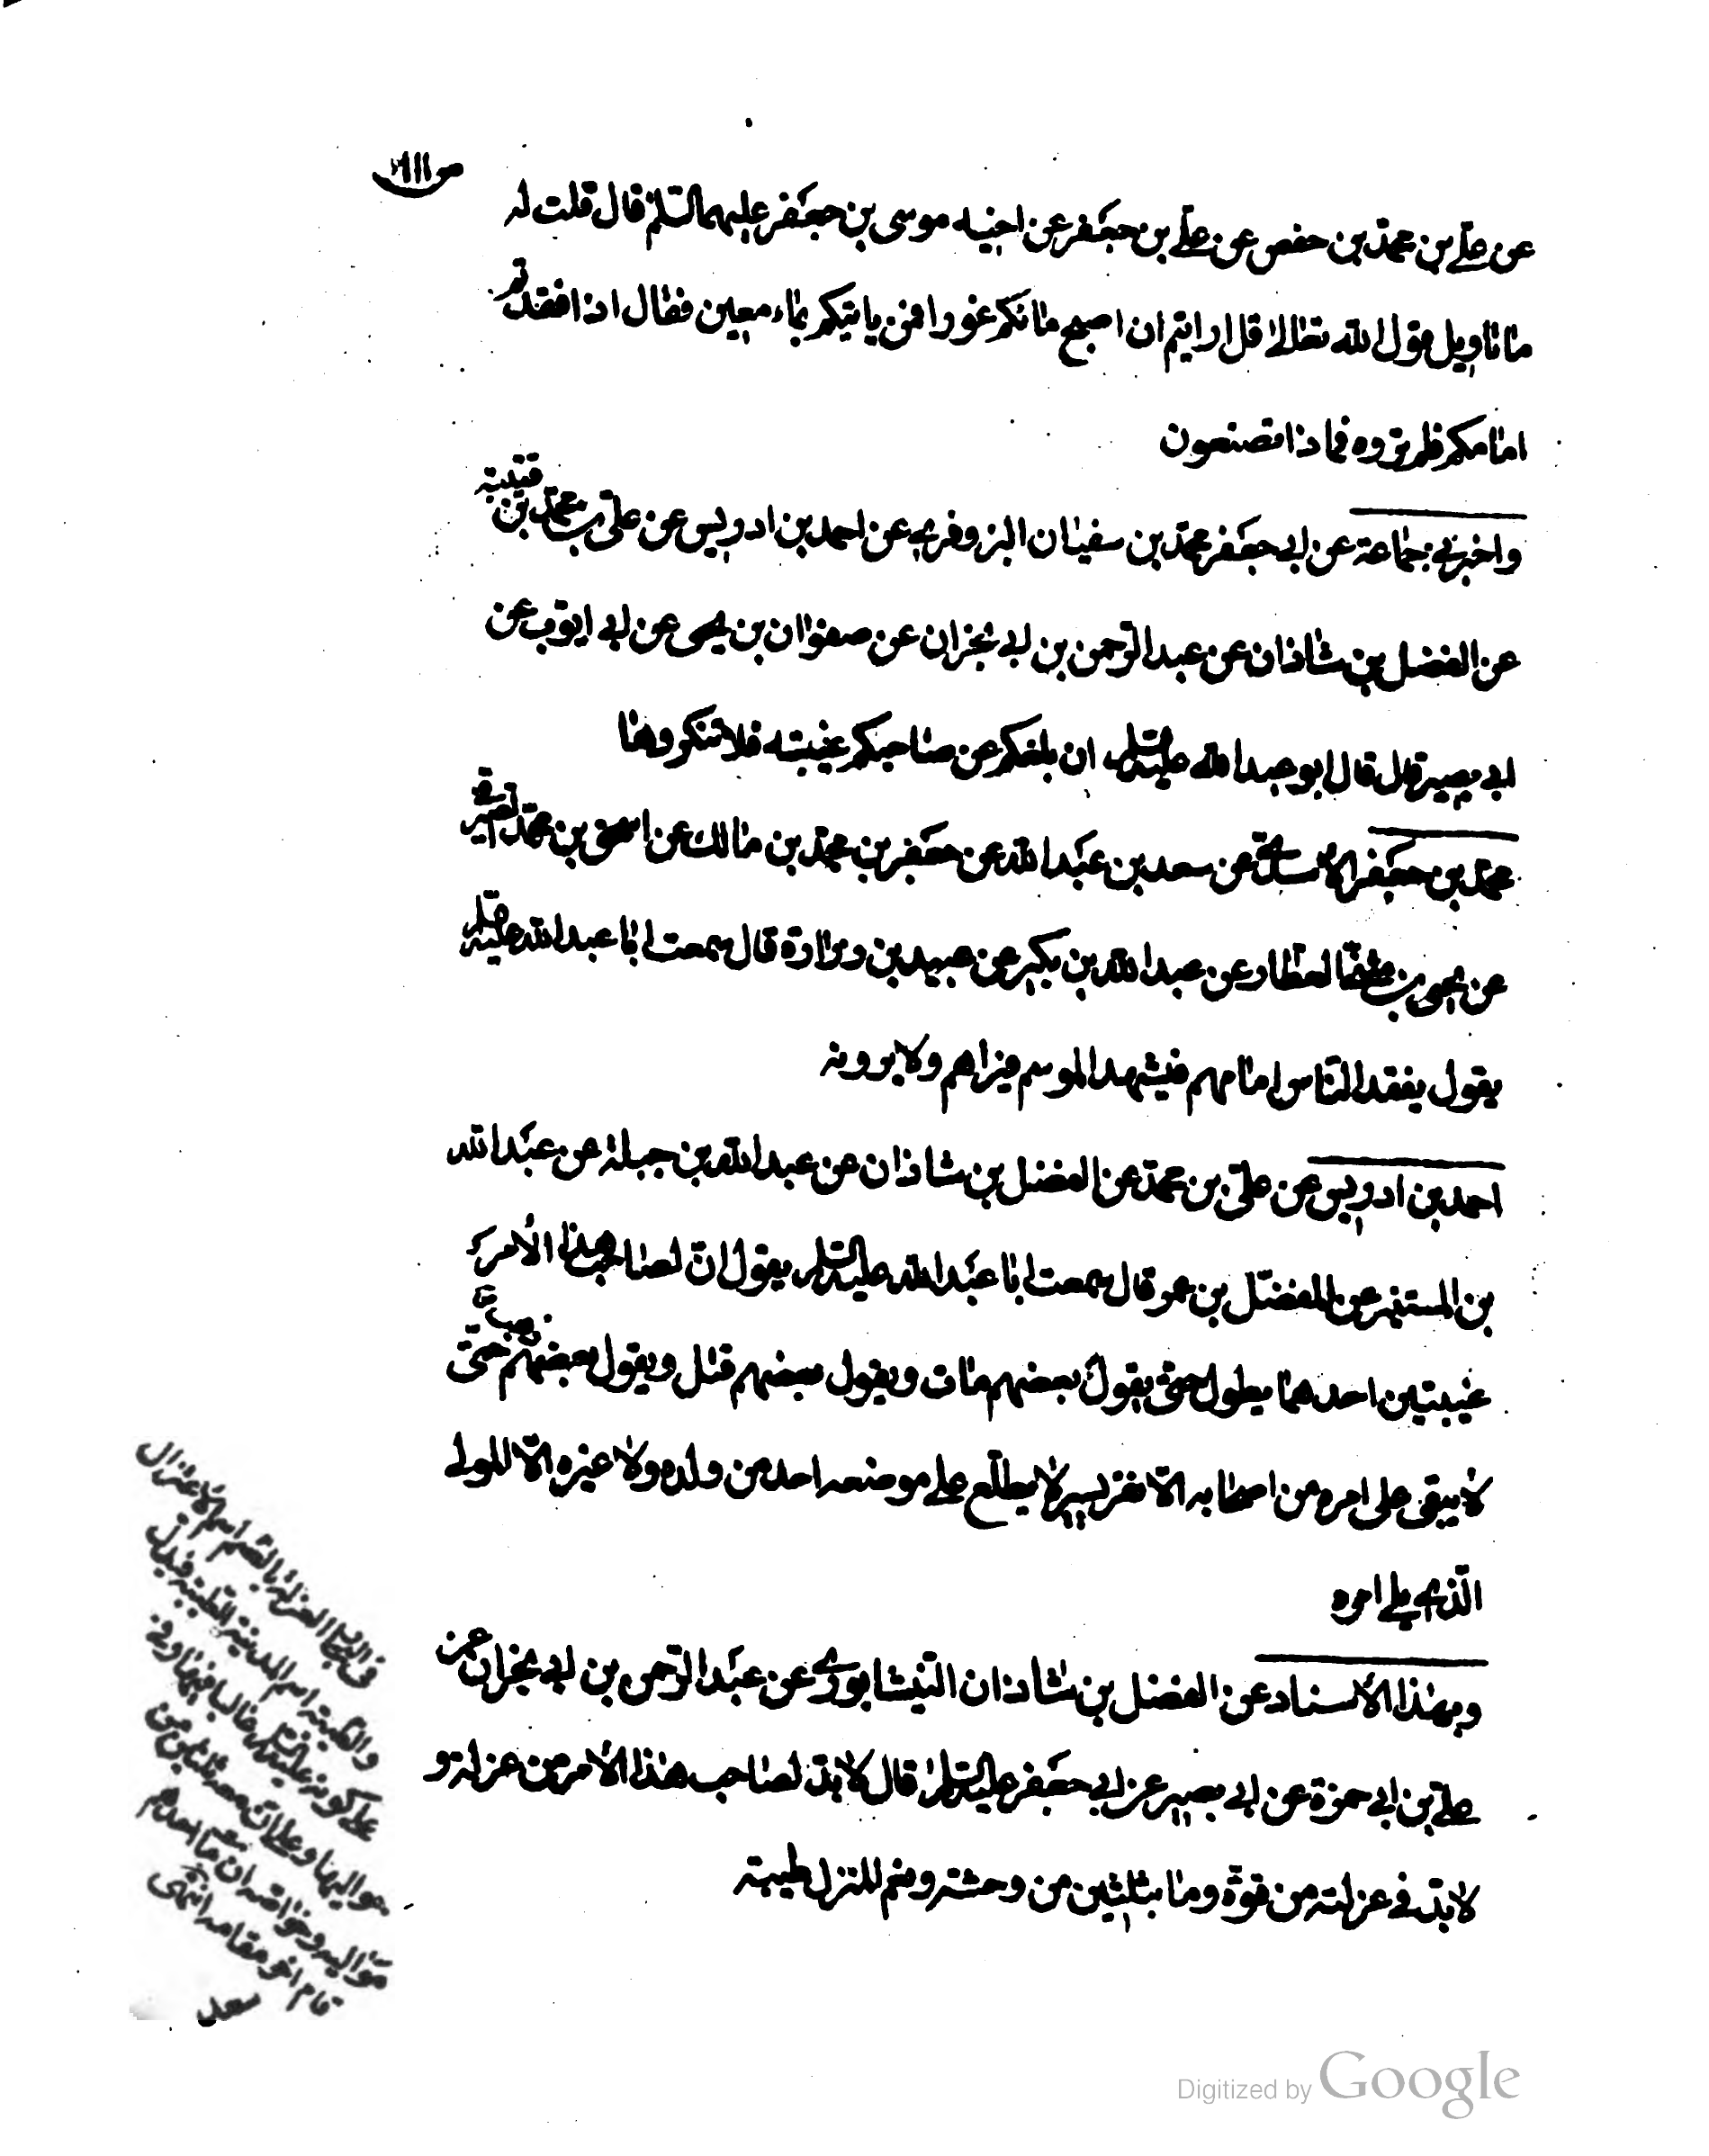 عن علي بن محمد بن حفص عن علي بن جعفر عن اخيه موسى بن جعفر عليهما السلام قال قلت له
ما تاويل قول الله تعالى قل ارايتم ان اصبح مائكم غورا فمن ياتيكم بماء معين فقال اذا فقدتم
امامكم فلم تروه فما ذا تصنعون
واخبرني جماعة عن ابي جعفر محمد بن سفيان البزوفري عن احمد بن ادريس عن علي بن محمد بن قتيبة
عن الفضل بن شاذان عن عبد الرحمن بن ابي نجران عن صفوان بن يحيى عن ابي ايوب عن
ابي بصير قال قال ابو عبد الله عليه السلم ان بلغكم عن صاحبكم غيبته فلا تنكروها
محمد بن جعفر الاسدي عن سعد بن عبد الله عن جعفر بن محمد بن مالك عن اسحق بن محمد الصيرفي
عن يحيى بن المثنى العطار عن عبد الله بن بكير عن عبيد بن زرارة قال سمعت ابا عبد الله عليه السلم
يقول يفقد الناس امامهم فيشهد الموسم فيراهم ولا يرونه
احمد بن ادريس عن علي بن محمد عن الفضل بن شاذان عن عبد الله بن جبلة عن عبد الله
بن المستنير عن المفضل بن عمر قال سمعت ابا عبد الله عليه السلم يقول ان لصاحب هذا الامر
غيبتين احدهما يطول حتى يقول بعضهم مات ويقول بعضهم قتل ويقول بعضهم ذهب حتى
لا يبقى على امره من اصحابه الا نفر يسير لا يطلع على موضعه احد من ولده ولا غيره الا المولى
الذي يلي امره
وبهذا الاسناد عن الفضل بن شاذان النيشابوري عن عبد الرحمن بن ابي نجران عن
علي بن ابي حمزة عن ابي بصير عن ابي جعفر عليه السلم قال لا بد لصاحب هذا الامر من عزلة و
لا بد في عزلته من قوة وما بثلثين من وحشة ونعم المنزل طيبة
في البحار العزلة بالضم اسم الاعتزال
والطيبة اسم المدينة الطيبة فيدل
على كونه عليه السلم غالبا فيها وفي
حواليها وعلى ان معه ثلثين من
مواليه وخواصه ان مات احدهم
قام اخر مقامه انتهى